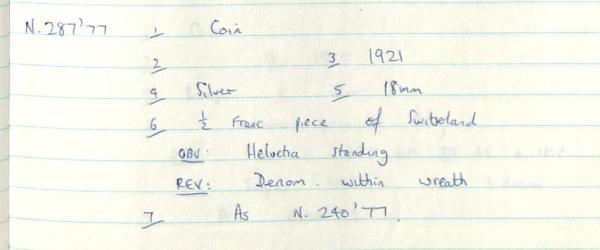 N.287'77 1 Coin
2 3 1921
4 Silver 5 18mm
6 ½ Franc piece of Switzeland
OBV: Helvetia standing
REV: Denom. within wreath
7 As N. 240'77.